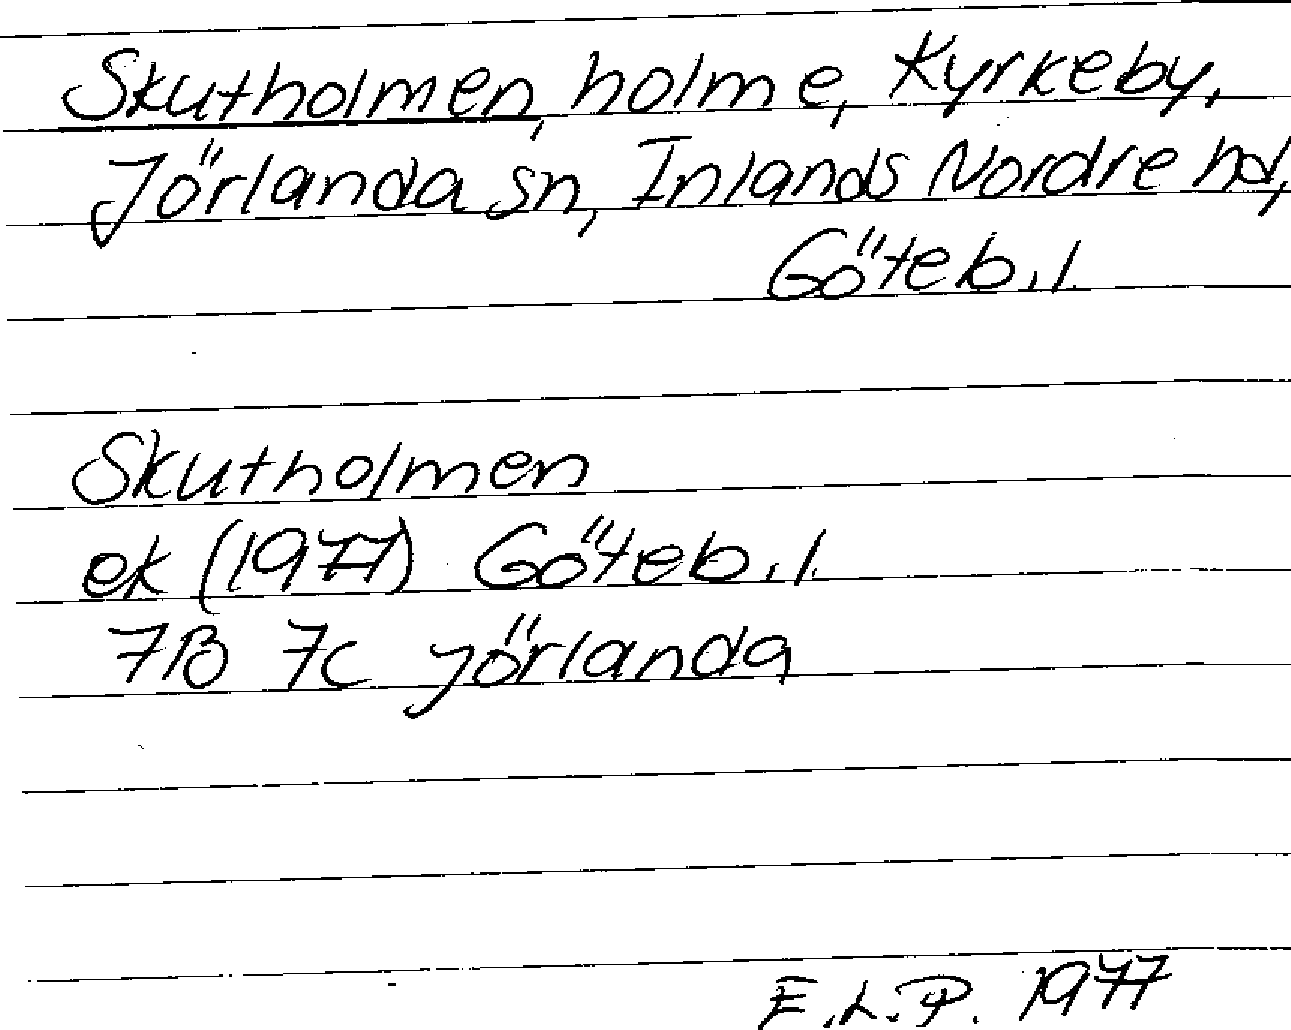 Skutholmen, holme, Kyrkeby,
Jörlanda sn, Inlands Nordre hd,
Göteb.l.
Skutholmen
ek (1977) Göteb.l.
7B 7c Jörlanda
E.L.P. 1977